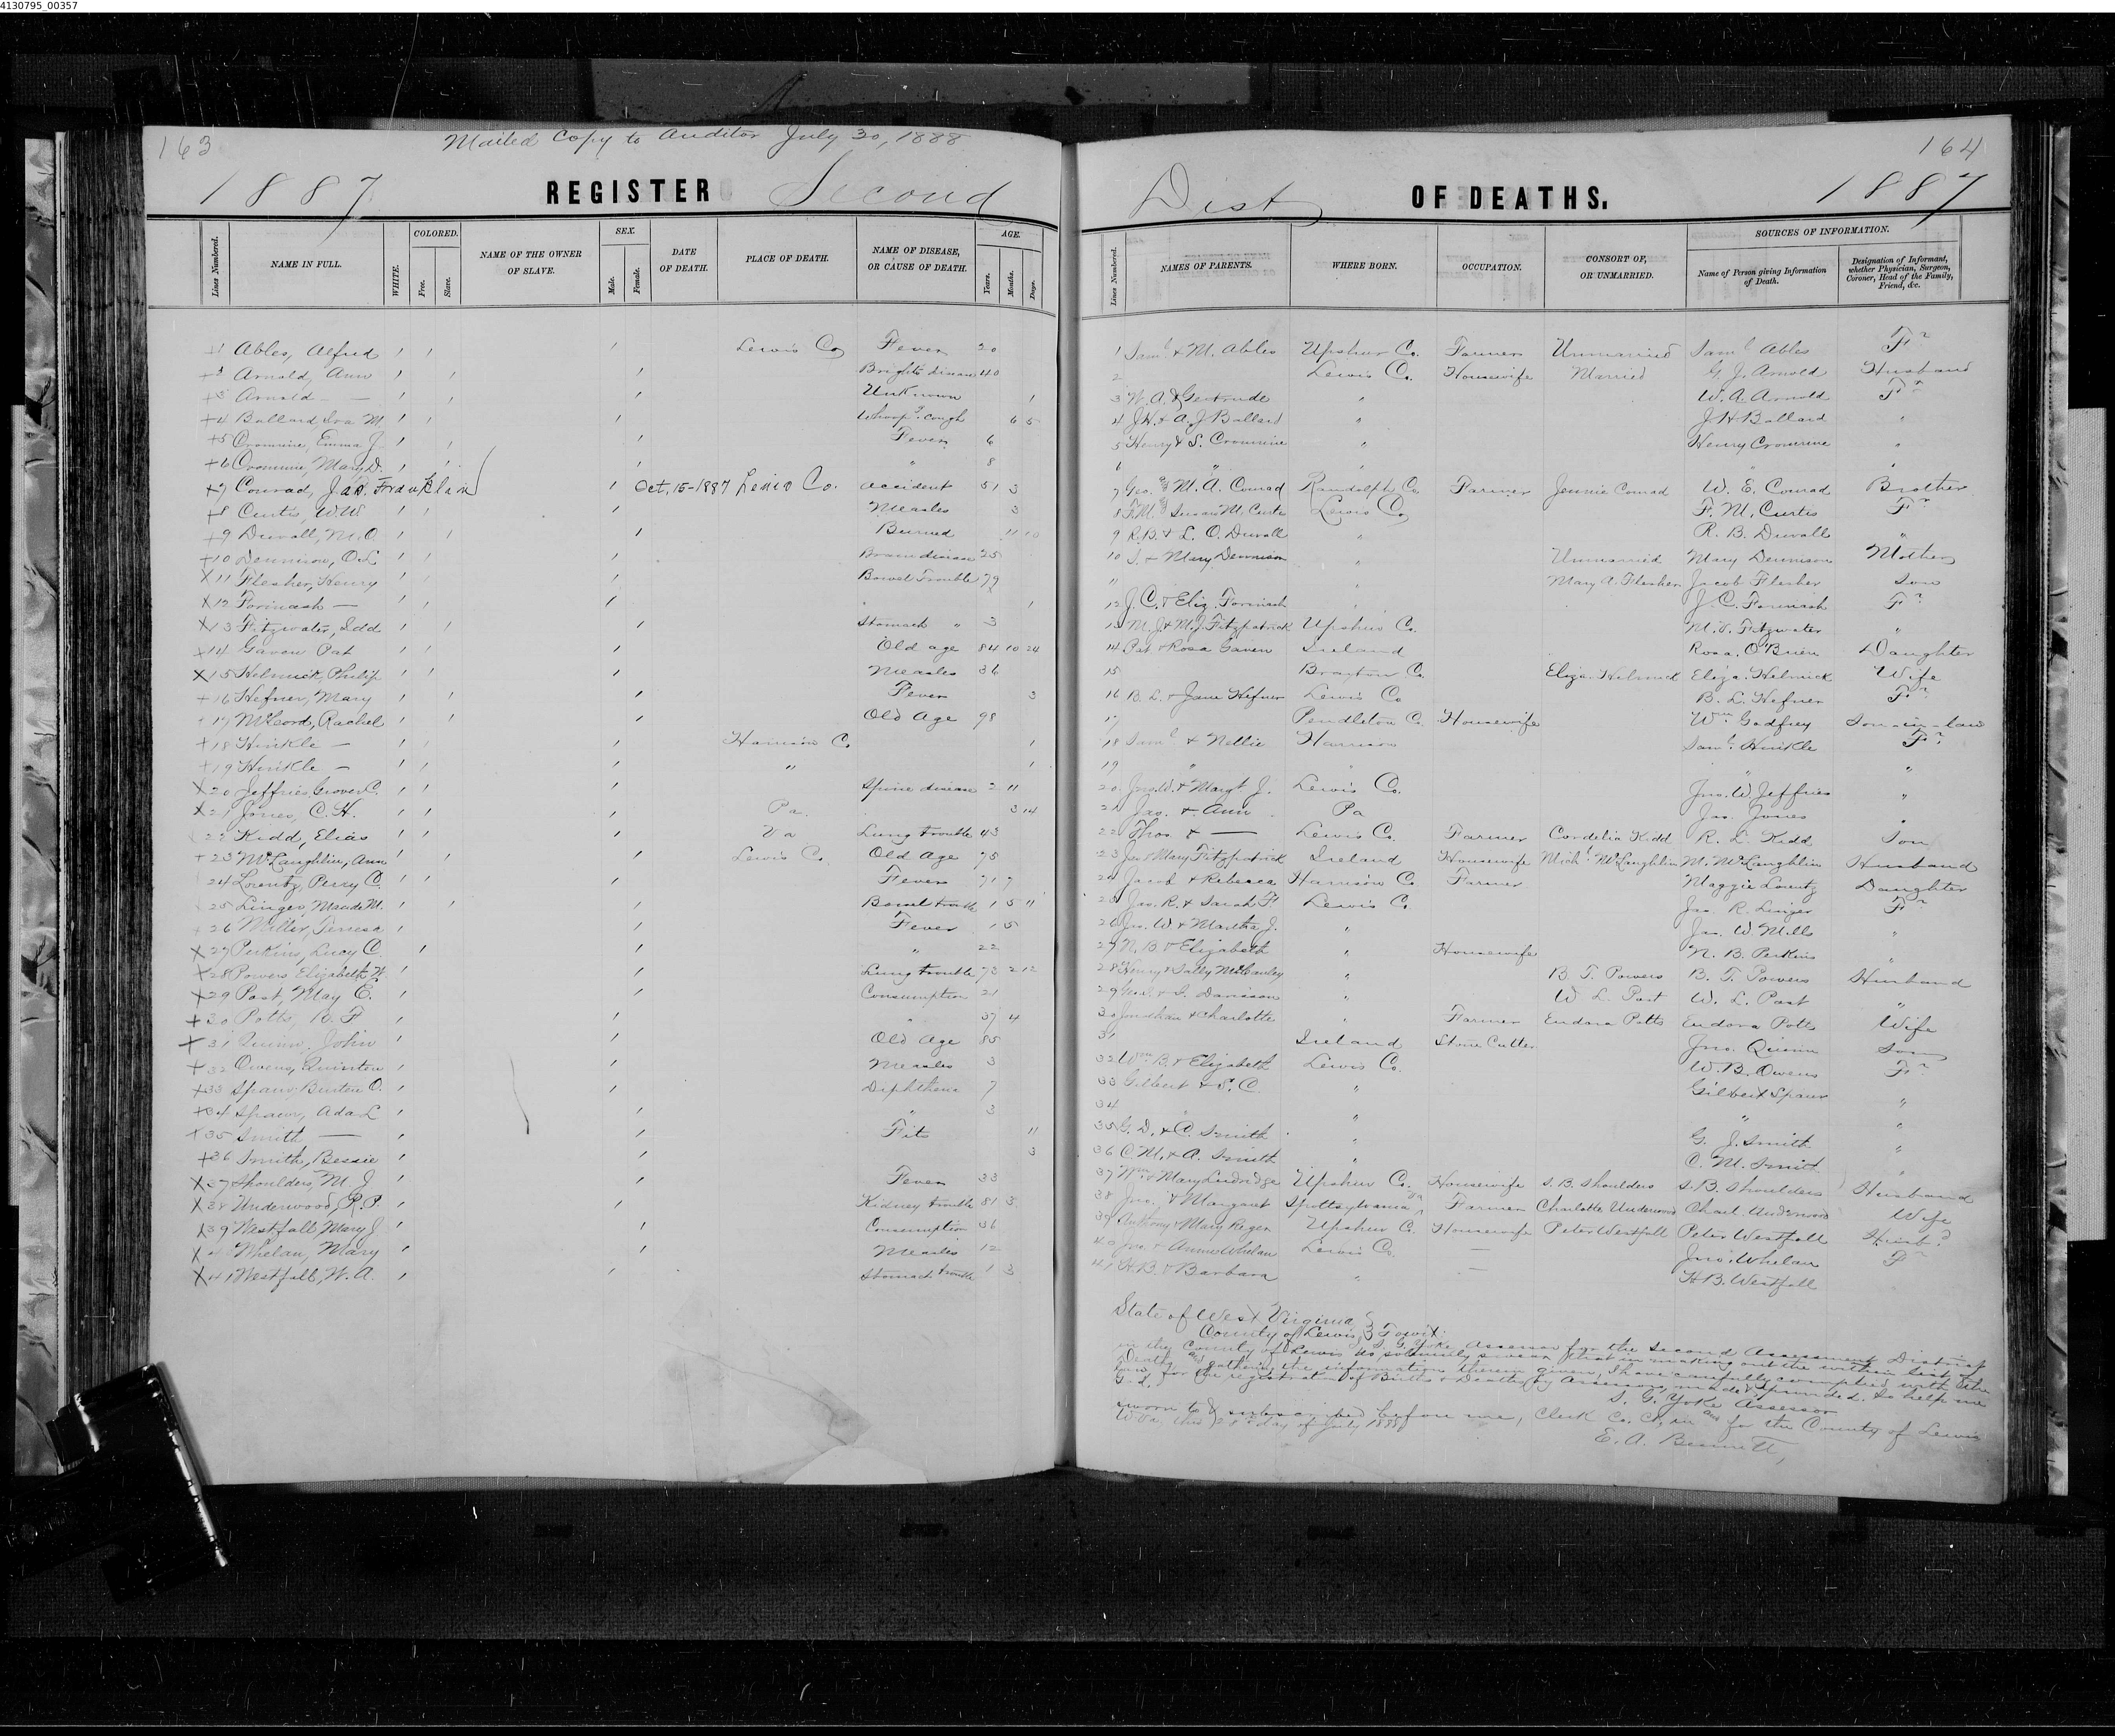 4130795_00357
163 Mailed Copy to Auditor July 30, 1888
1887 REGISTER Second
Lines Numbered. NAME IN FULL. WHITE. COLORED. Free. Slave. NAME OF THE OWNER OF SLAVE. SEX. Male. Female. DATE OF DEATH. PLACE OF DEATH. NAME OF DISEASE, OR CAUSE OF DEATH. AGE. Years. Months. Days.
1 Ables, Alfred Lewis Co Fever 20
2 Arnold, Ann Brights disease 40
3 Arnold — Unknown 1
4 Ballard, Iva M. Whoop'g cough 6 5
5 Cronmine, Emma J. Fever 6
6 Cronmine, Mary D. " 8
7 Conrad, Jas. Franklin Oct, 15-1887 Lewis Co. accident 51 3
8 Curtis, W.W. Measles 3
9 Duvall, M.O. Burned 11 10
10 Dennison, O.L. Brain disease 25
11 Flesher, Henry Bowel Trouble 79
12 Forinash — 1
13 Fitzwater, Idd Stomach " 3
14 Gaven Pat Old age 84 10 24
15 Helmick, Philip Measles 36
16 Hefner, Mary Fever 3
17 McCord, Rachel Old Age 98
18 Hinkle — Harrison Co 1
19 Hinkle — " 1
20 Jeffries, Grover C. Spine disease 2 11
21 Jones, C. H. Pa. 3 14
22 Kidd, Elias Va Lung trouble 43
23 McLaughlin, Ann Lewis Co. Old Age 75
24 Lorentz, Perry C. Fever 71 7
25 Linger, Maude M. Bowel trouble 1 5 11
26 Miller, Teresa Fever 1 5
27 Perkins, Lucy C. " 22
28 Powers Elizabeth H. Lung trouble 73 2 12
29 Post, May E. Consumption 21
30 Potts, B. F. " 37 4
31 Quinn, John Old Age 85
32 Owens, Quinton Measles 3
33 Spaur, Burton O. Diphtheria 7
34 Spaur, Ada L " 3
35 Smith — Fits 11
36 Smith, Bessie 3
37 Shoulders, M. J Fever 33
38 Underwood, R. P. Kidney trouble 81 3
39 Westfall Mary J Consumption 36
4 Whelan, Mary Measles 12
41 Westfall, W. A. Stomach trouble 1 3
164
Dist OF DEATHS. 1887
Lines Numbered. NAMES OF PARENTS. WHERE BORN. OCCUPATION. CONSORT OF, OR UNMARRIED. SOURCES OF INFORMATION. Name of Person giving Information of Death. Designation of Informant, whether Physician, Surgeon, Coroner, Head of the Family, Friend, &c.
1 Saml & M. Ables Upshur Co. Farmer Unmarried Saml Ables Fr
2 Lewis Co. Housewife Married G. J. Arnold Husband
3 W. A. & Gertrude " W. A. Arnold Fr
4 J.H. & A. J Ballard " J H Ballard "
5 Henry & S. Cronmine " Henry Cronmine "
6 " " " "
7 Geo. & M. A. Conrad Randolph Co Farmer Jennie Conrad W. E. Conrad Brother
8 F.M. & Susan M. Curtis Lewis Co F. M. Curtis Fr
9 R.B. & L. O. Duvall " R. B. Duvall "
10 S. & Mary Dennison Unmarried Mary Dennison Mother
11 " Mary A. Flesher Jacob Flesher Son
12 J. C. & Eliz. Forinash J. C. Forinash Fr
13 M. J. & M. J. Fitzpatrick Upshur Co. M. J. Fitzwater "
14 Pat. & Rosa Gaven Ireland Rosa O'Brien Daughter
15 Braxton Co Eliza. Helmick Eliza. Helmick Wife
16 B. L. & Jane Hefner Lewis Co B. L. Hefner Fr
17 Pendleton C. Housewife Wm Godfrey Son-in-law
18 Saml & Nellie Harrison Saml Hinkle Fr
19 " " " "
20 Jno. W. & Margt J. Lewis Co. Jno. W Jeffries "
21 Jas. & Ann Pa Jas. Jones "
22 Thos & — Lewis Co. Farmer Cordelia Kidd R. L. Kidd Son
23 Jas & Mary Fitzpatrick Ireland Housewife Michl McLaughlin M. McLaughlin Husband
24 Jacob & Rebecca Harrison Co Farmer Maggie Lorentz Daughter
25 Jas. R. & Sarah F Lewis Co. Jas R. Linger Fr
26 Jas. W. & Martha J. " Jas. W. Mills "
27 N. B. & Elizabeth " Housewife N. B. Perkins "
28 Henry & Sally McCauley " B. T. Powers B. T. Powers Husband
29 Geo. & S. Davisson " W L. Post W. L. Post "
30 Jonathan & Charlotte " Farmer Eudora Potts Eudora Potts Wife
31 Ireland Stone Cutter Jno. Quinn Son
32 Wm B. & Elizabeth Lewis Co. W. B. Owens Fr
33 Gilbert & S. C. " Gilbert Spaur "
34 " " " "
35 G. D. & C. Smith " G. J. Smith "
36 C. M. & A. Smith " C. M. Smith "
37 Wm & Mary Upshur Co. Housewife S. B. Shoulders S. B. Shoulders Husband
38 Jno. & Margaret Spottsylvania Va Farmer Charlotte Underwood Charl. Underwood Wife
39 Anthony & Mary Reger Upshur C. Housewife Peter Westfall Peter Westfall Husbd
40 Jno. & Annie Whelan Lewis Co. — Jno. Whelan Fr
41 H. B. & Barbara " — H. B. Westfall
State of West Virginia }
County of Lewis, } Towit:
I, S. G. Yoke Assessor for the Second Assessment District
in the County of Lewis do solemnly swear that in making out the within list of
Deaths and gathering the information therein given, I have carefully complied with the
Law for the registration of Births & Deaths by Assessors, made & provided. So help me
G-d. S. G. Yoke Assessor
Sworn to & subscribed before me, Clerk Co. Ct, in and for the County of Lewis
W.Va, this 28th day of July 1888
E. A. Bennett,